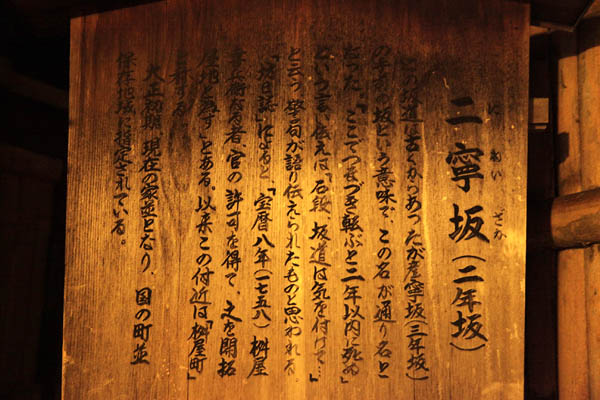 二寧坂(二年坂)
にねいざか
この坂道は古くからあったが産寧坂(三年坂)
の下の坂という意味で、この名が通り名と
なった。「ここでつまづき転ぶと二年以内に死ぬ」
という言い伝えは「石段、坂道は気を付けて…」
と云う 挙句が語り伝えられたものと思われる。
「坊目誌」によると「宝暦八年(一七五八)桝屋
喜兵衛なる者、官の許可を得て、之を開拓
屋地と為す」とある。以来この付近は「桝屋町」
と称する。
大正初期、現在の家並となり、国の町並
保存地域に指定されている。